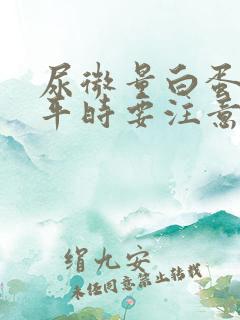 尿微量白蛋
平时要注意
绢九安
未经同意禁止转载